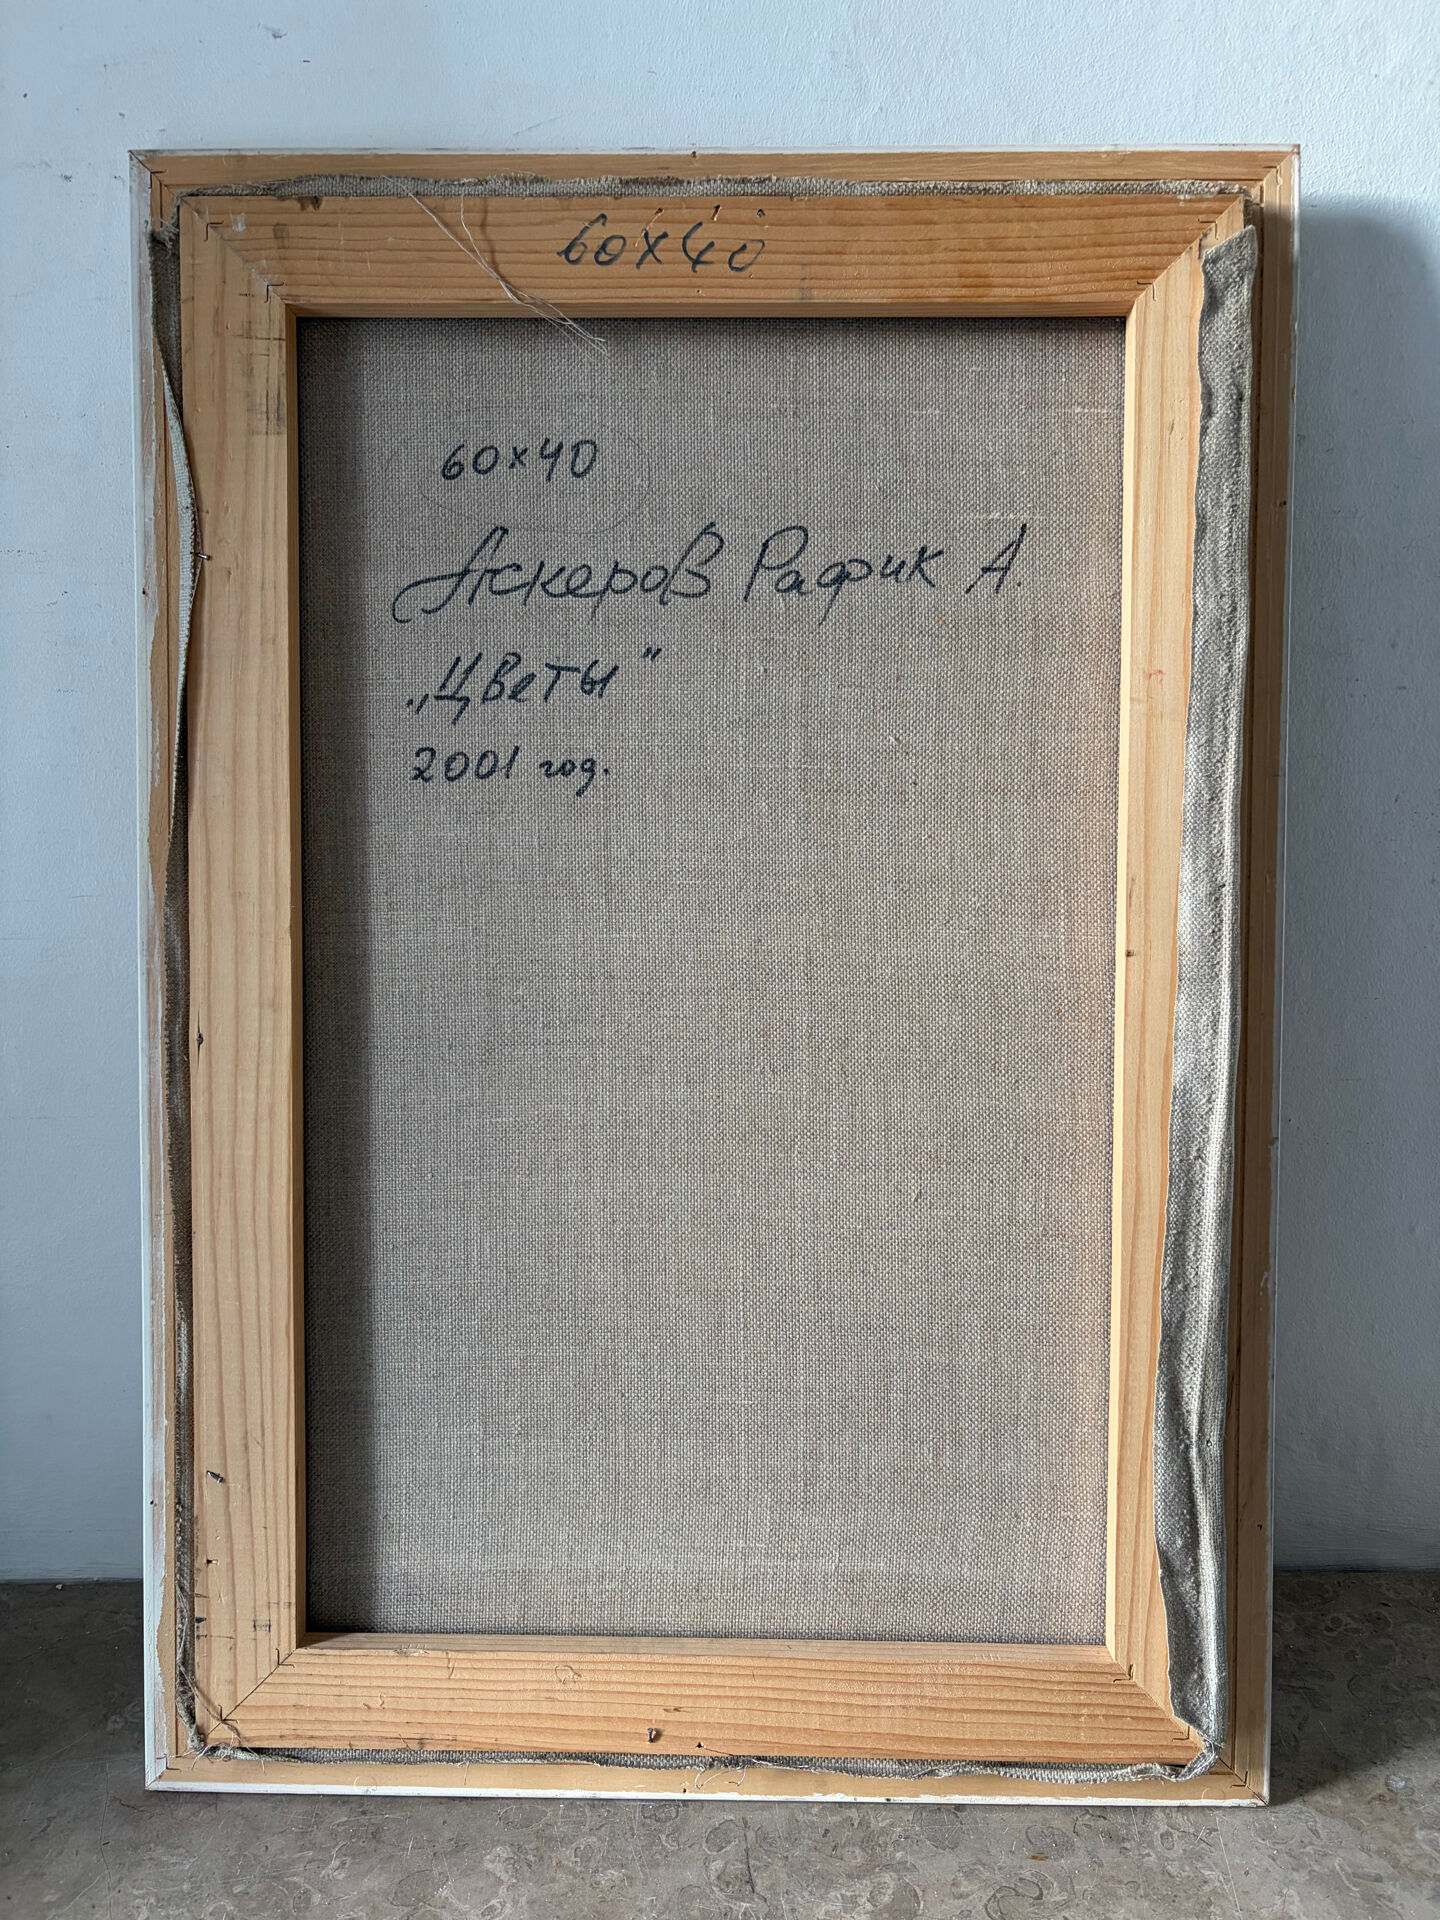 60х40
60х40
Аскеров Рафик А.
„Цветы"
2001 год.